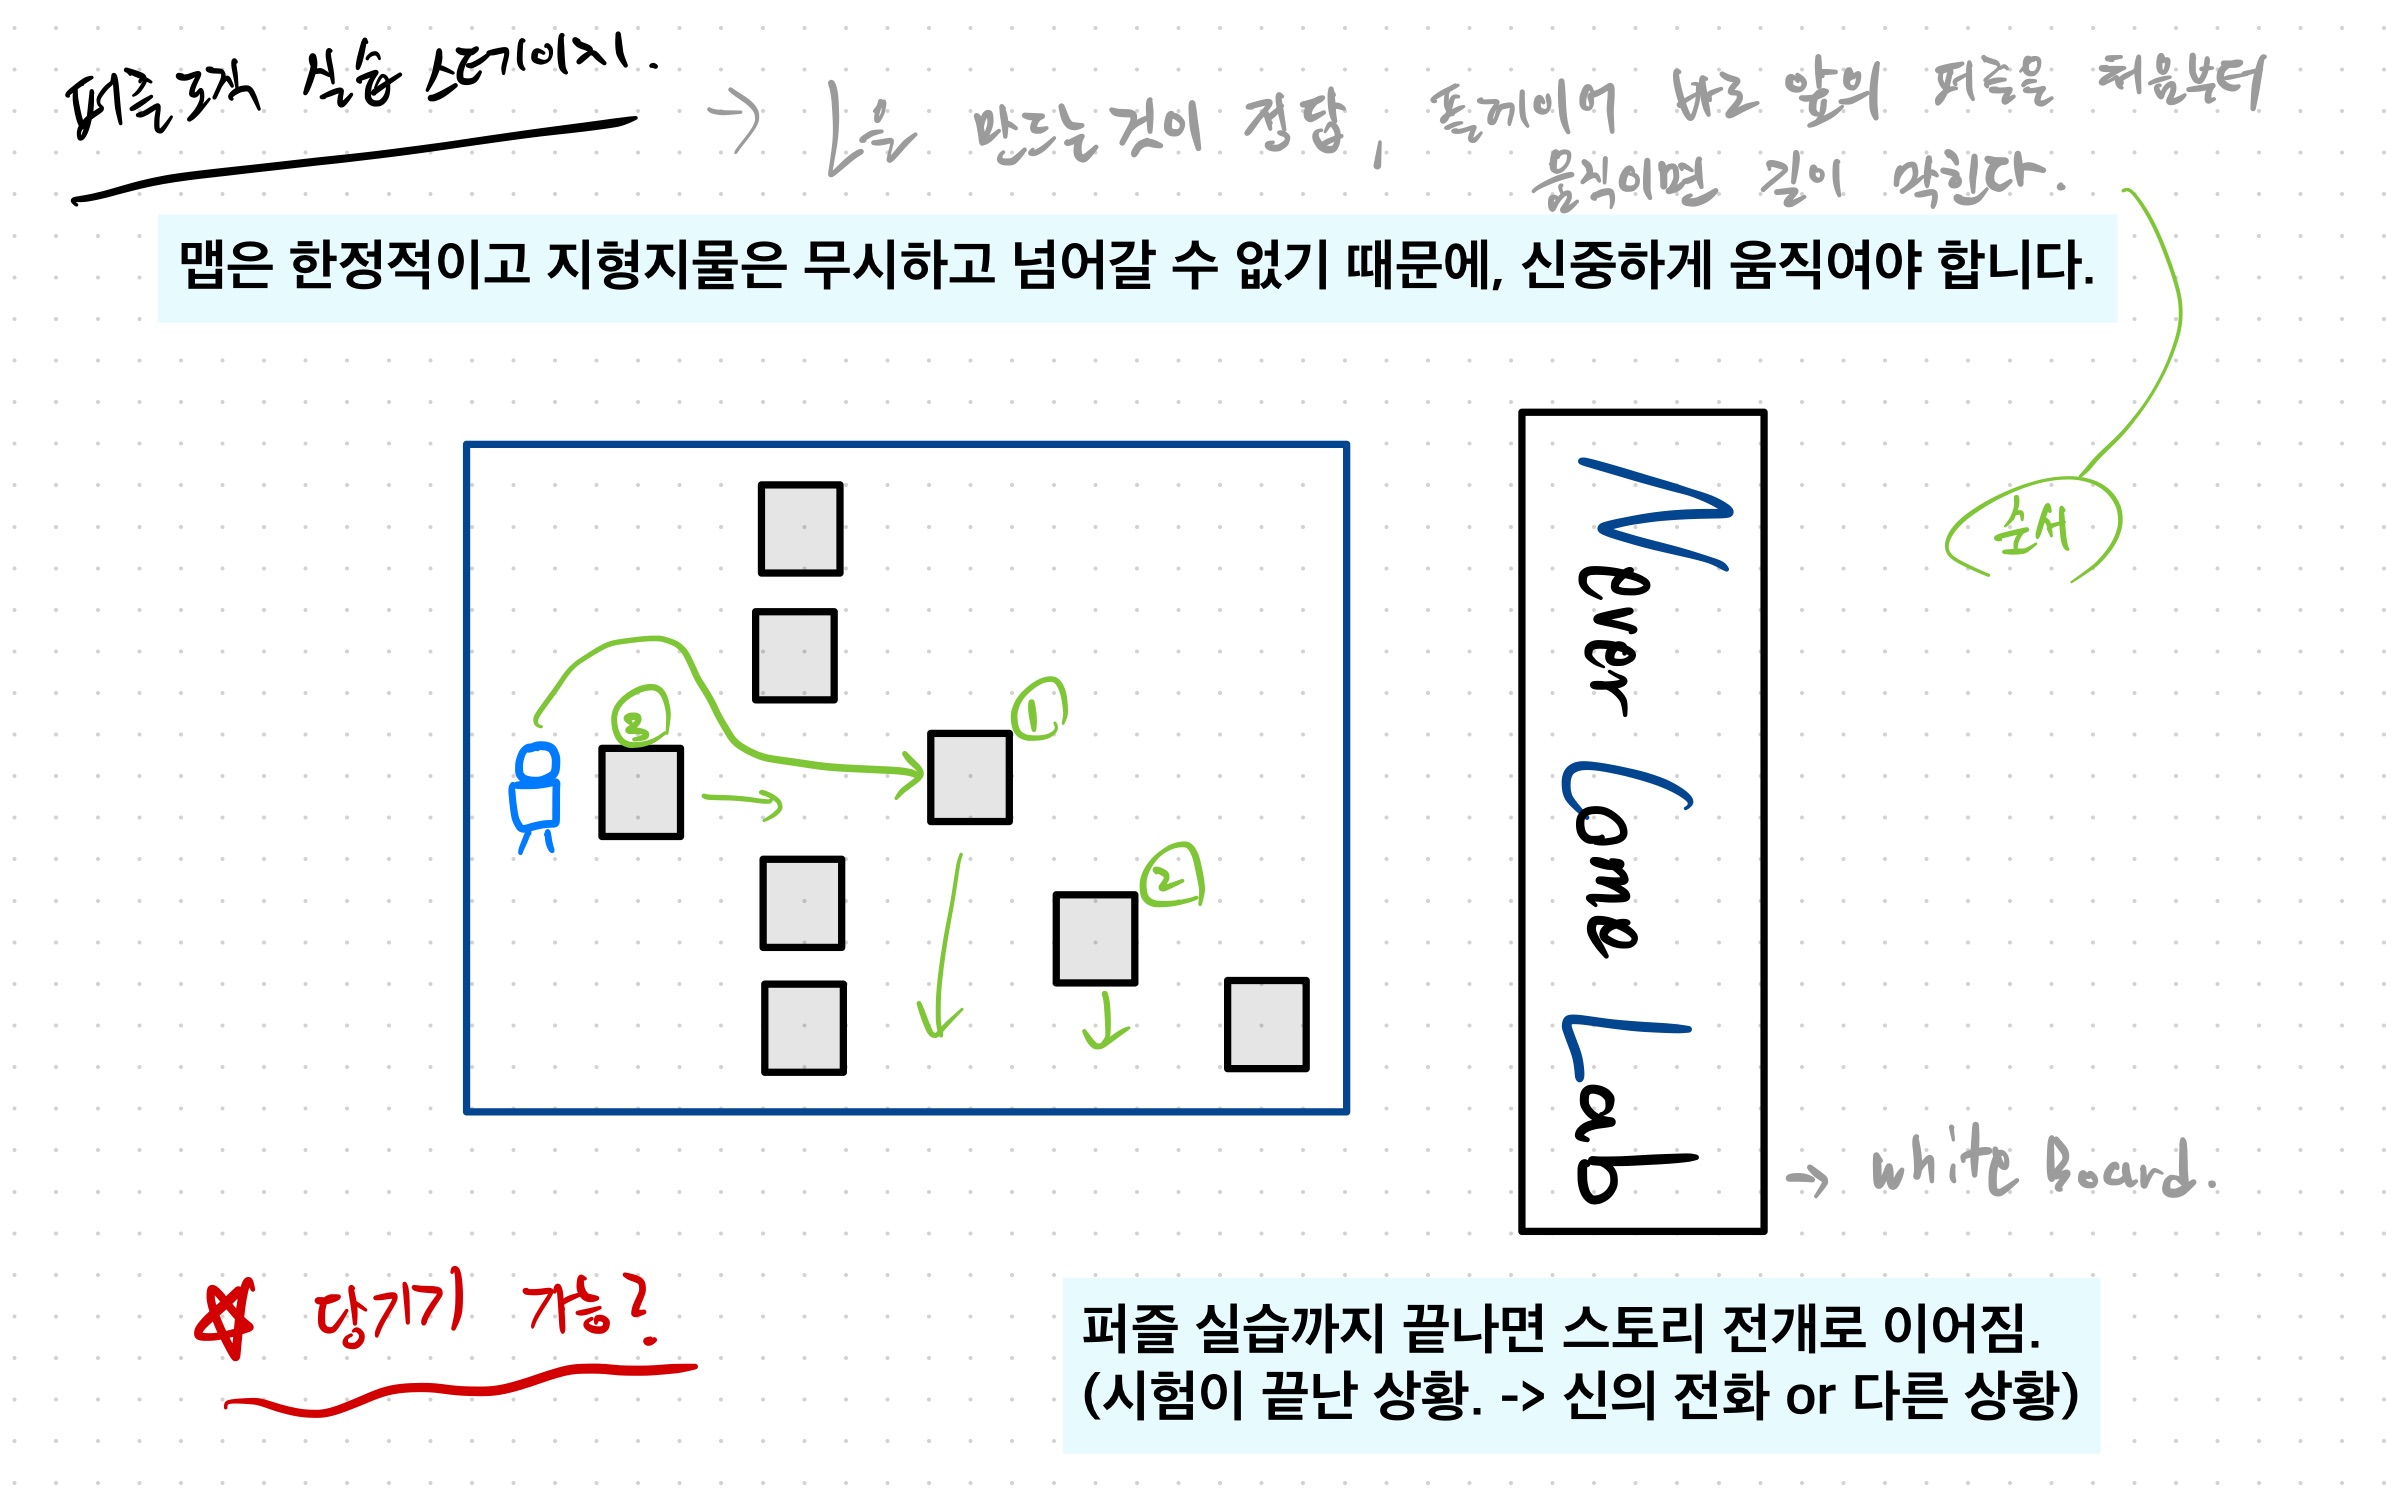 퍼즐 조작 실습 스테이지.
→ L을 만드는 것이 정답, 플레이어 바로 앞의 퍼즐을 처음부터
움직이면 길이 막힌다.
맵은 한정적이고 지형지물은 무시하고 넘어갈 수 없기 때문에, 신중하게 움직여야 합니다.
순서
1
2
3
Never Come Lab
→ white Board.
당기기 가능?
퍼즐 실습까지 끝나면 스토리 전개로 이어짐.
(시험이 끝난 상황. -> 신의 전화 or 다른 상황)